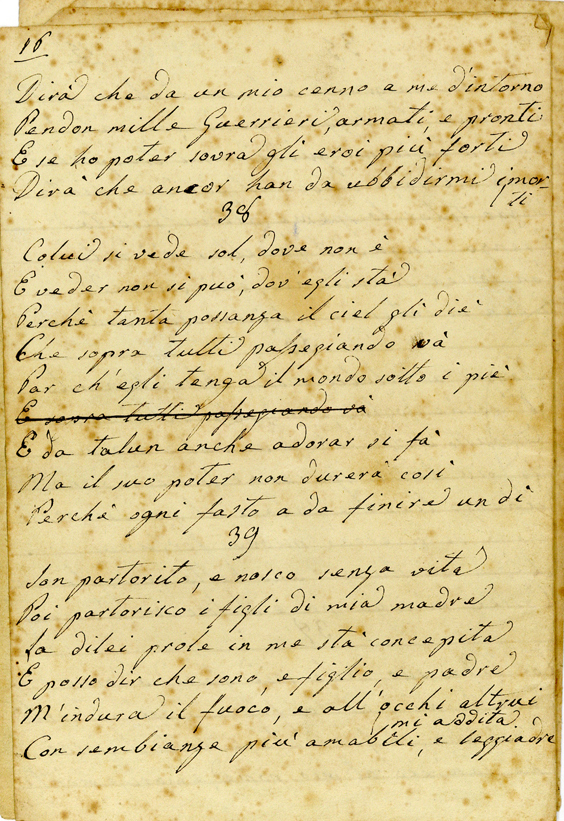 16
Dirà che da un mio cenno a me d'intorno
Pendon mille Guerrieri, armati, e pronti
E se ho poter sovra gli eroi più forti
Dirà che ancor han da ubbidirmi i mor-
ti
38
Colui si vede sol, dove non è
E veder non si può, dov'egli stà
Perchè tanta possanza il ciel gli diè
Che sopra tutti passegiando và
Par ch'egli tenga il mondo sotto i piè
E sovra tutti passegiando và
E da talun anche adorar si fà
Ma il suo poter non durerà così
Perchè ogni fasto a da finire un dì
39
Son partorito, e nasco senza vita
Poi partorisco i figli di mia madre
La dilei prole in me stà concepita
E posso dir che sono e figlio, e padre
M'indura il fuoco, e all'occhi altrui
mi addita
Con sembianze più amabili, e leggiadre